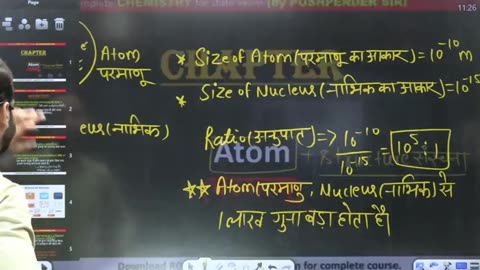 Complete CHEMISTRY for State level (BY PUSHPENDER SIR)
11:26
Page
Atom
परमाणु
* Size of Atom (परमाणु का आकार) = 10⁻¹⁰ m
* Size of Nucleus (नाभिक का आकार) = 10⁻¹⁵
(नाभिक)
Ratio (अनुपात) => 10⁻¹⁰ / 10⁻¹⁵ = 10⁵:1
CHAPTER
Atom
** Atom (परमाणु, Nucleus (नाभिक) से
1 लाख गुना बड़ा होता है।
for complete course.